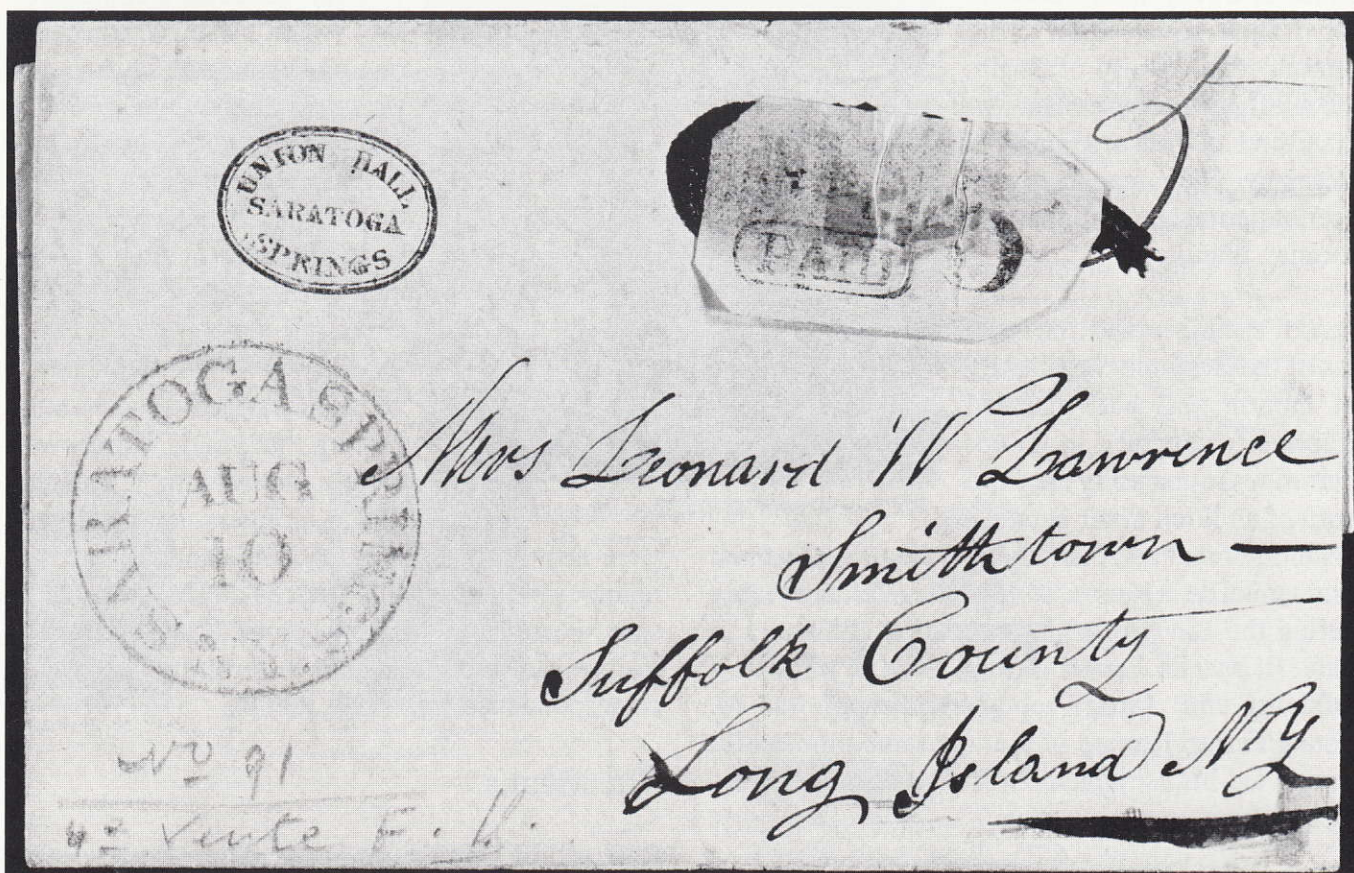 UNION HALL
SARATOGA
SPRINGS
PAID
SARATOGA SPRINGS N.Y.
AUG
10
Mrs Leonard W Lawrence
Smithtown —
Suffolk County
Long Island NY
No 91
4e Vente F. H.